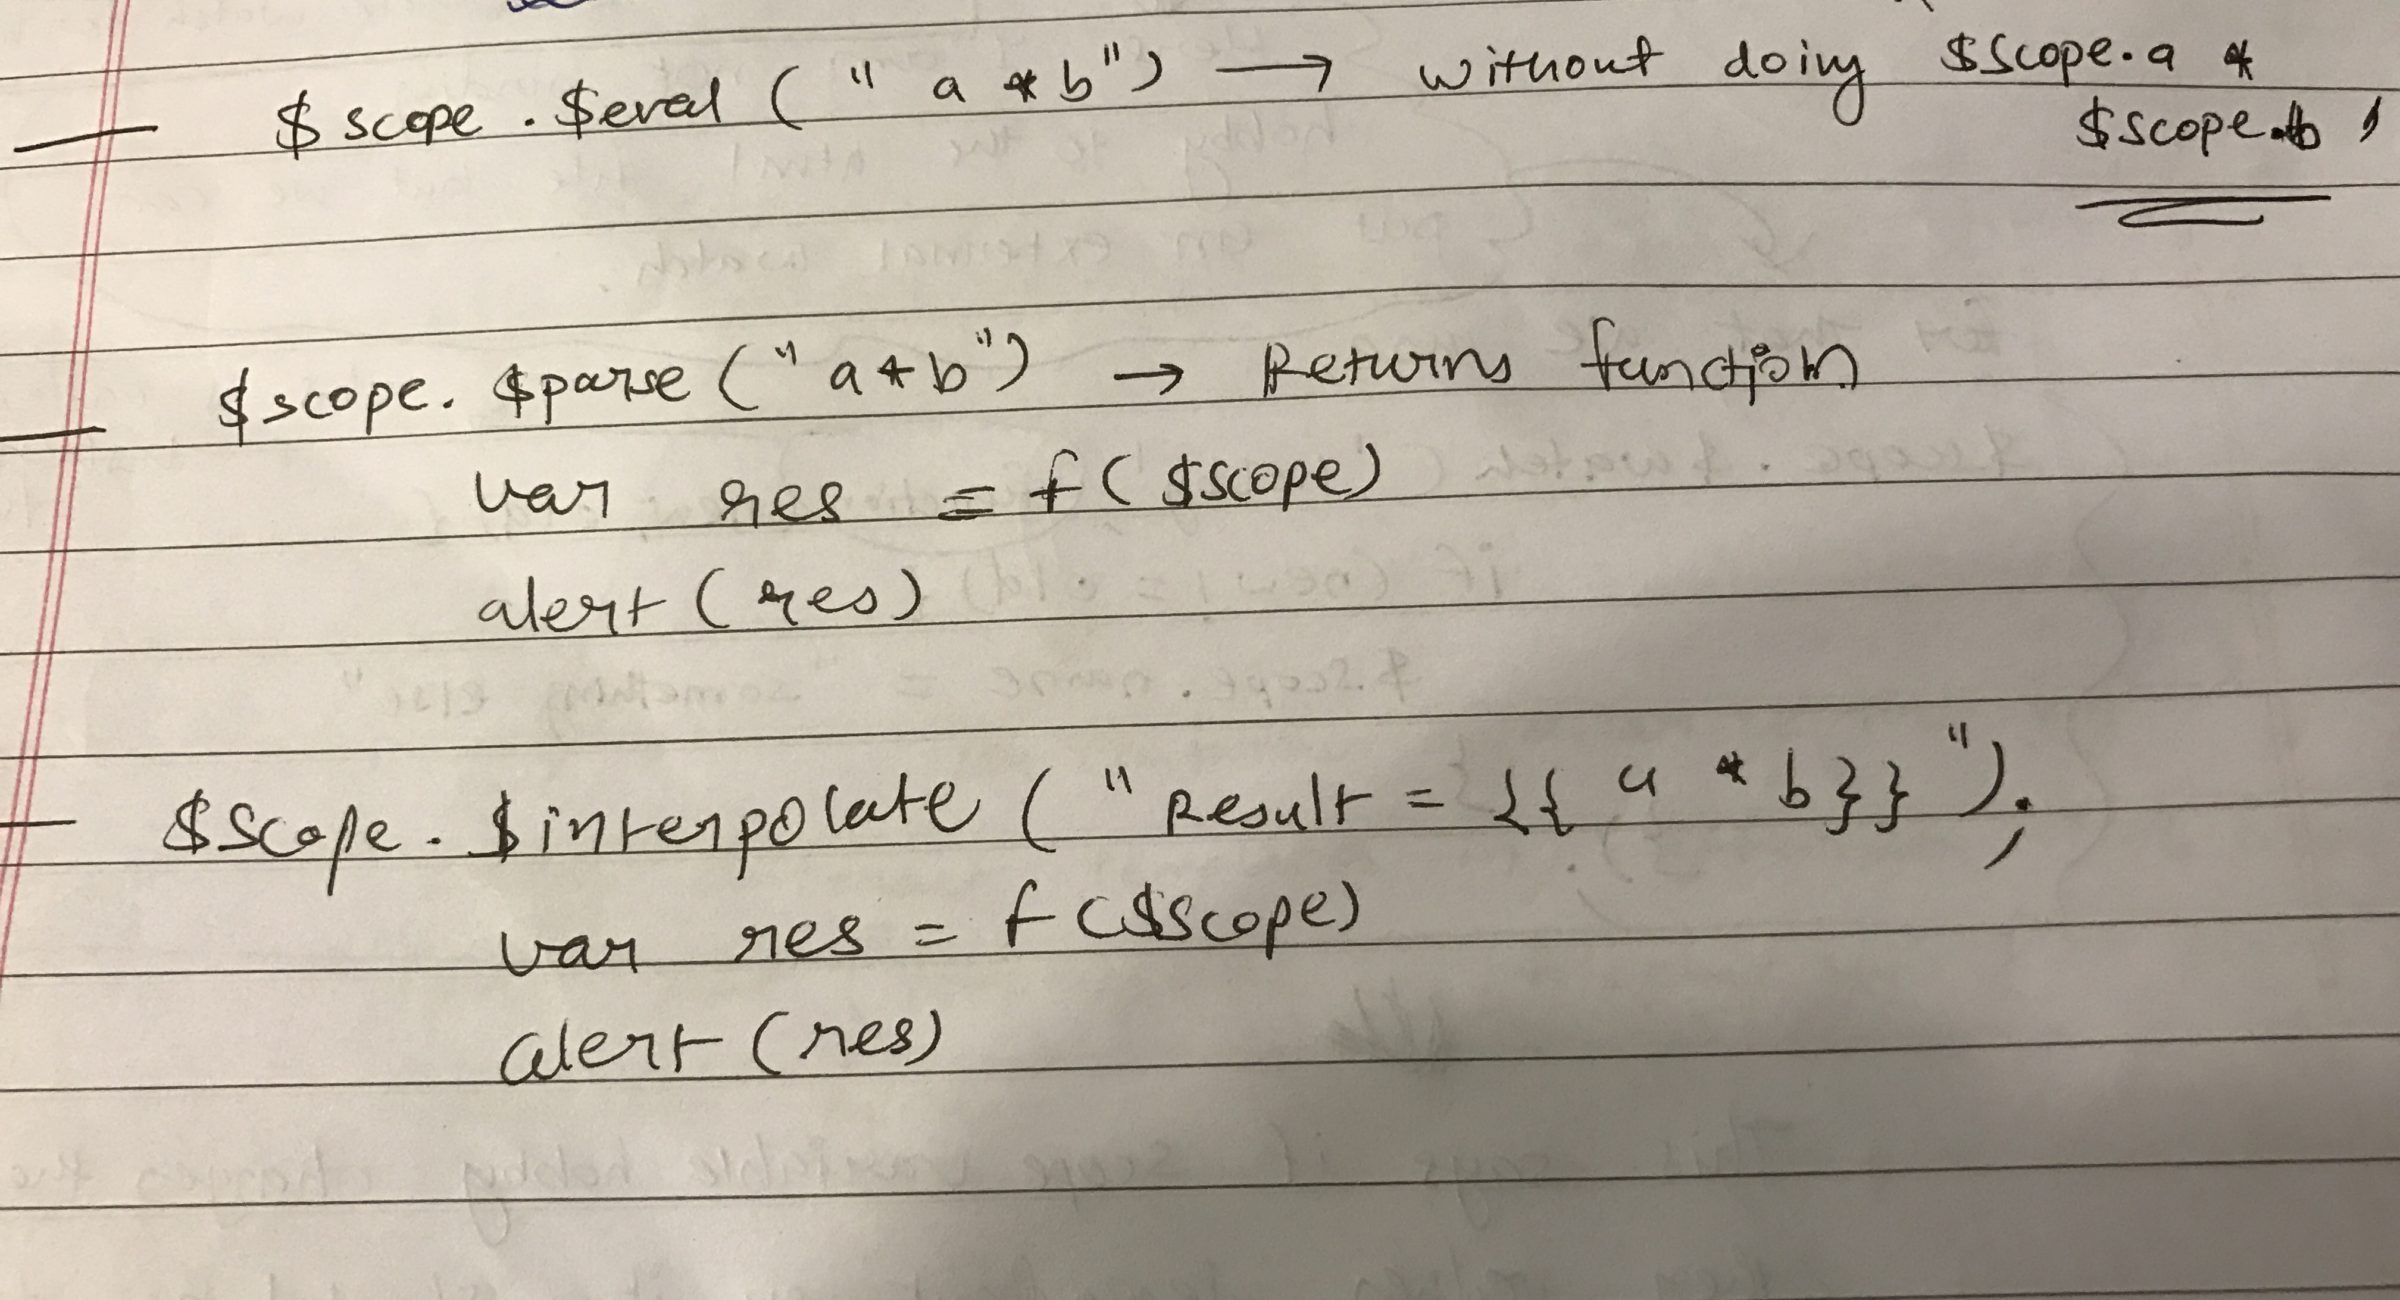 — $scope.$eval("a * b") → without doing $scope.a *
$scope.b
— $scope.$parse("a * b") → Returns function
var res = f($scope)
alert(res)
— $scope.$interpolate("Result = {{ a * b}}");
var res = f($scope)
alert(res)